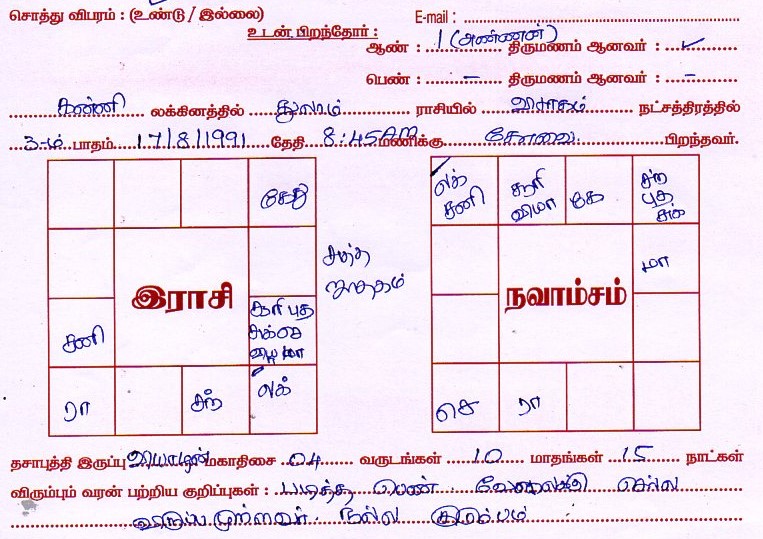 சொத்து விபரம் : (உண்டு / இல்லை) E-mail :
உடன் பிறந்தோர் :
ஆண் : 1 (அண்ணன்) திருமணம் ஆனவர் : ✓
பெண் : – திருமணம் ஆனவர் : –
கன்னி லக்கினத்தில் துலாம் ராசியில் விசாகம் நட்சத்திரத்தில்
3-ம் பாதம் 17/8/1991 தேதி 8:45AM மணிக்கு கோவை பிறந்தவர்.
கேது
சுத்த
ஜாதகம்
இராசி
சனி
சூரி புத
சுக் செ
வியா மா
ரா
சந்
லக்
லக்
சனி
சூரி
வியா
கே
சந்
புத
சுக்
மா
நவாம்சம்
செ
ரா
தசாபுத்தி இருப்பு வியாழன் மகாதிசை 04 வருடங்கள் 10 மாதங்கள் 15 நாட்கள்
விரும்பும் வரன் பற்றிய குறிப்புகள் : படித்த பெண் வேலைக்கு செல்ல
விருப்பமுள்ளவர் நல்ல குடும்பம்